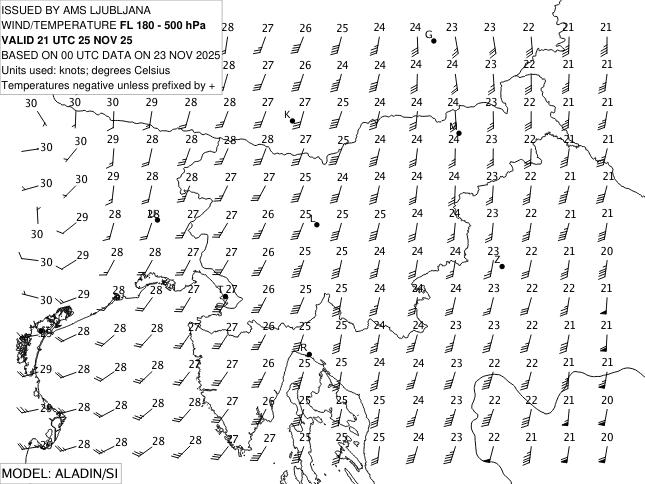 ISSUED BY AMS LJUBLJANA
WIND/TEMPERATURE FL 180 - 500 hPa
VALID 21 UTC 25 NOV 25
BASED ON 00 UTC DATA ON 23 NOV 2025
Units used: knots; degrees Celsius
Temperatures negative unless prefixed by +
28 27 26 25 24 24 23 23 22 21 21
G
28 27 26 25 24 24 24 23 22 21 21
30 30 30 29 28 28 27 27 25 24 24 24 23 22 21 21
K
M
30 30 29 28 28 28 28 27 25 24 24 24 23 22 21 21
30 30 29 28 28 27 27 26 25 25 24 24 23 22 21 21
30 29 28 28 27 27 26 25 25 25 24 24 23 22 21 21
L
30 29 28 28 27 27 26 25 25 24 24 24 23 22 21 20
Z
30 29 28 28 27 27 26 25 25 24 24 24 23 22 22 21
T
28 28 28 27 27 26 25 25 24 24 23 23 22 21 21
R
29 28 28 28 27 27 26 25 25 24 24 23 22 22 21 21
28 28 28 28 28 27 26 25 25 25 24 23 22 22 21 20
28 28 28 28 27 27 25 25 25 24 23 22 21 21 20
MODEL: ALADIN/SI